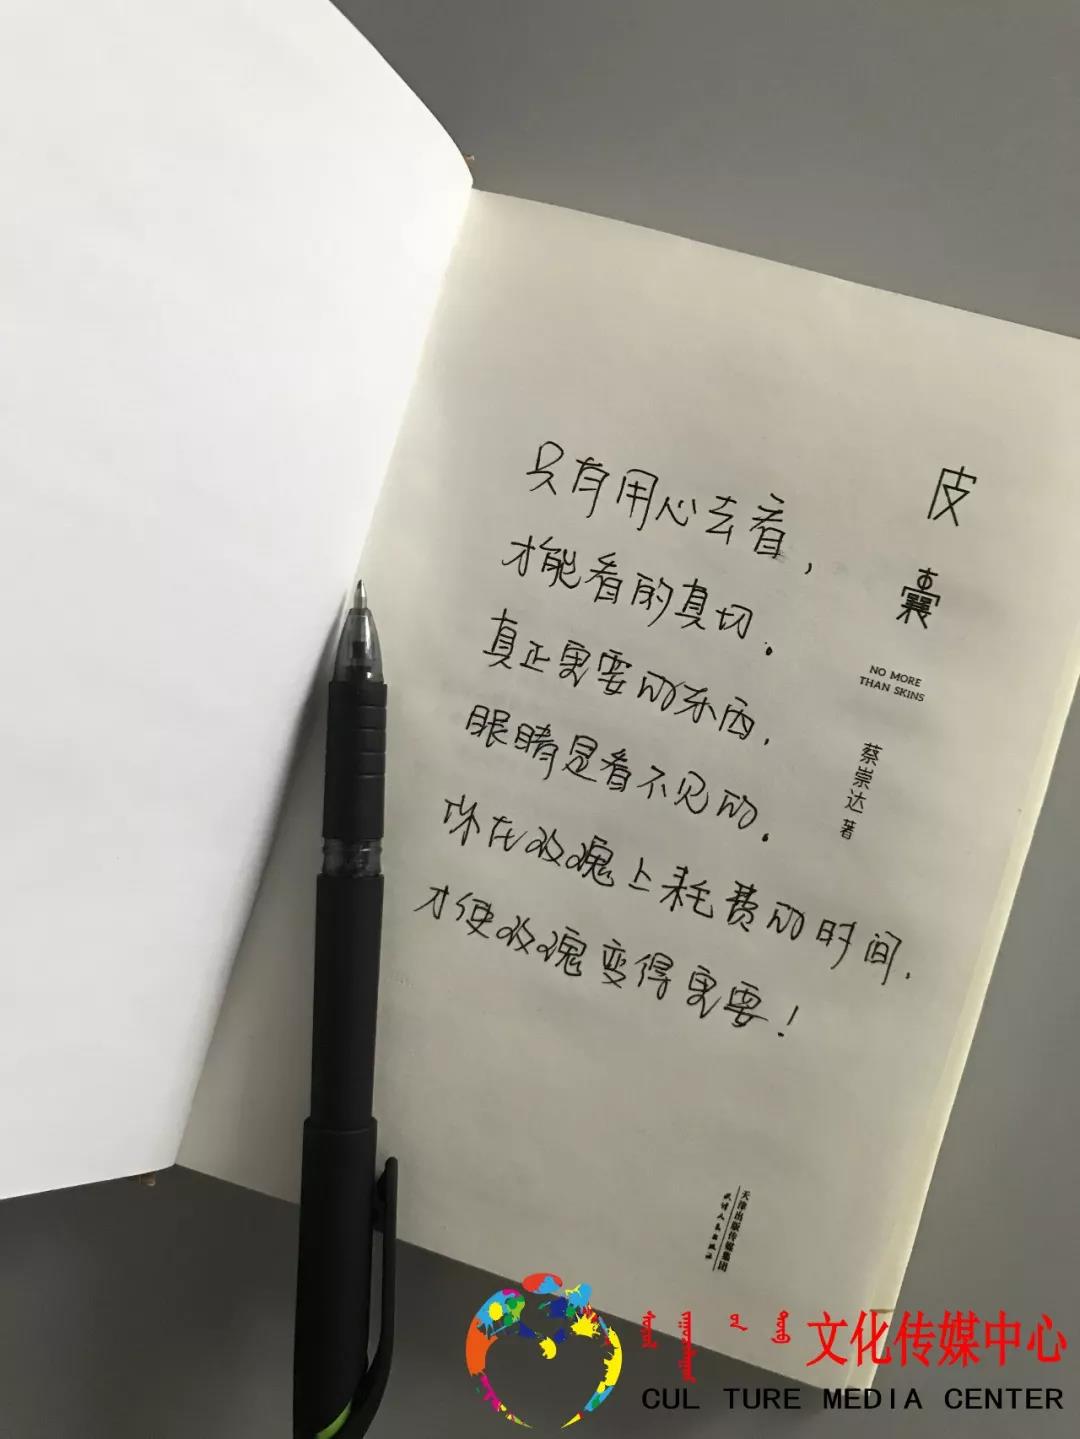 只有用心去看，
才能看的真切。
真正重要的东西，
眼睛是看不见的。
你在玫瑰上耗费的时间，
才使玫瑰变得重要！
皮
囊
NO MORE
THAN SKINS
蔡崇达 著
天津出版传媒集团
天津人民出版社
文化传媒中心
CUL TURE MEDIA CENTER